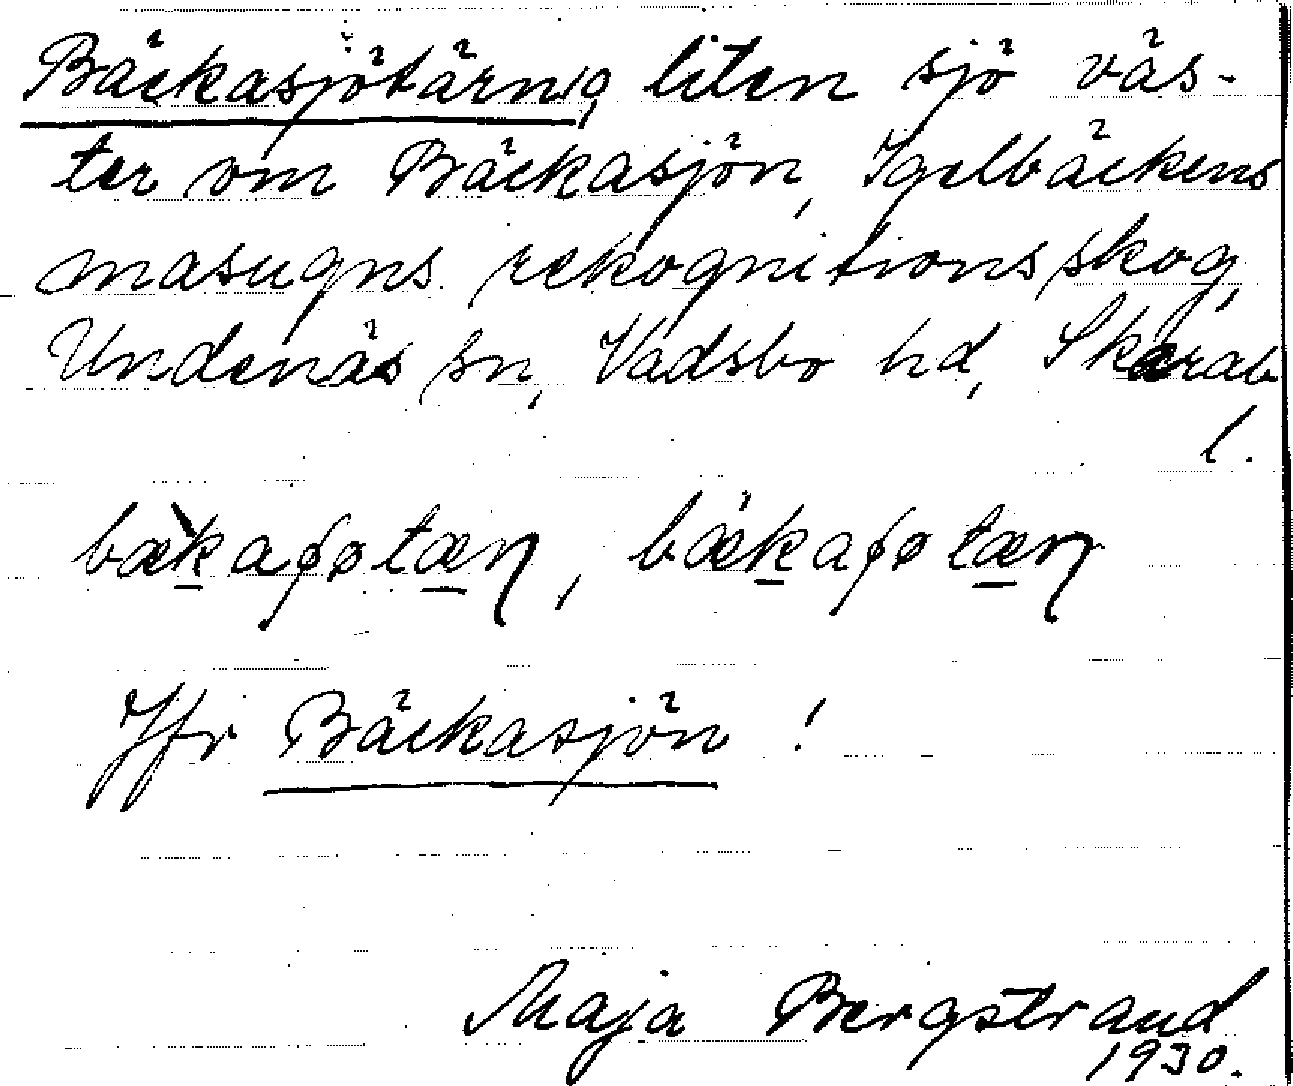 Bäckasjötärnig, liten sjö väs-
ter om Bäckasjön, Igelbäckens
masugns rekognitionsskog,
Undenäs sn, Vadsbo hd, Skarab
l.
Jfr Bäckasjön!
Maja Bergstrand
1930.